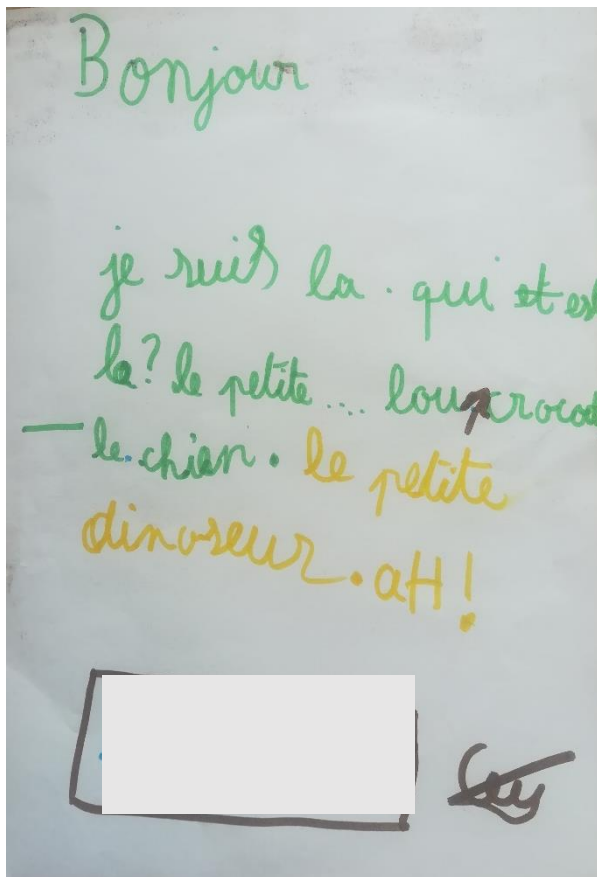 Bonjour
je suis la. qui et es
la? le petite.... loup crocod
— le.chien. le petite
dinoseur.aH!